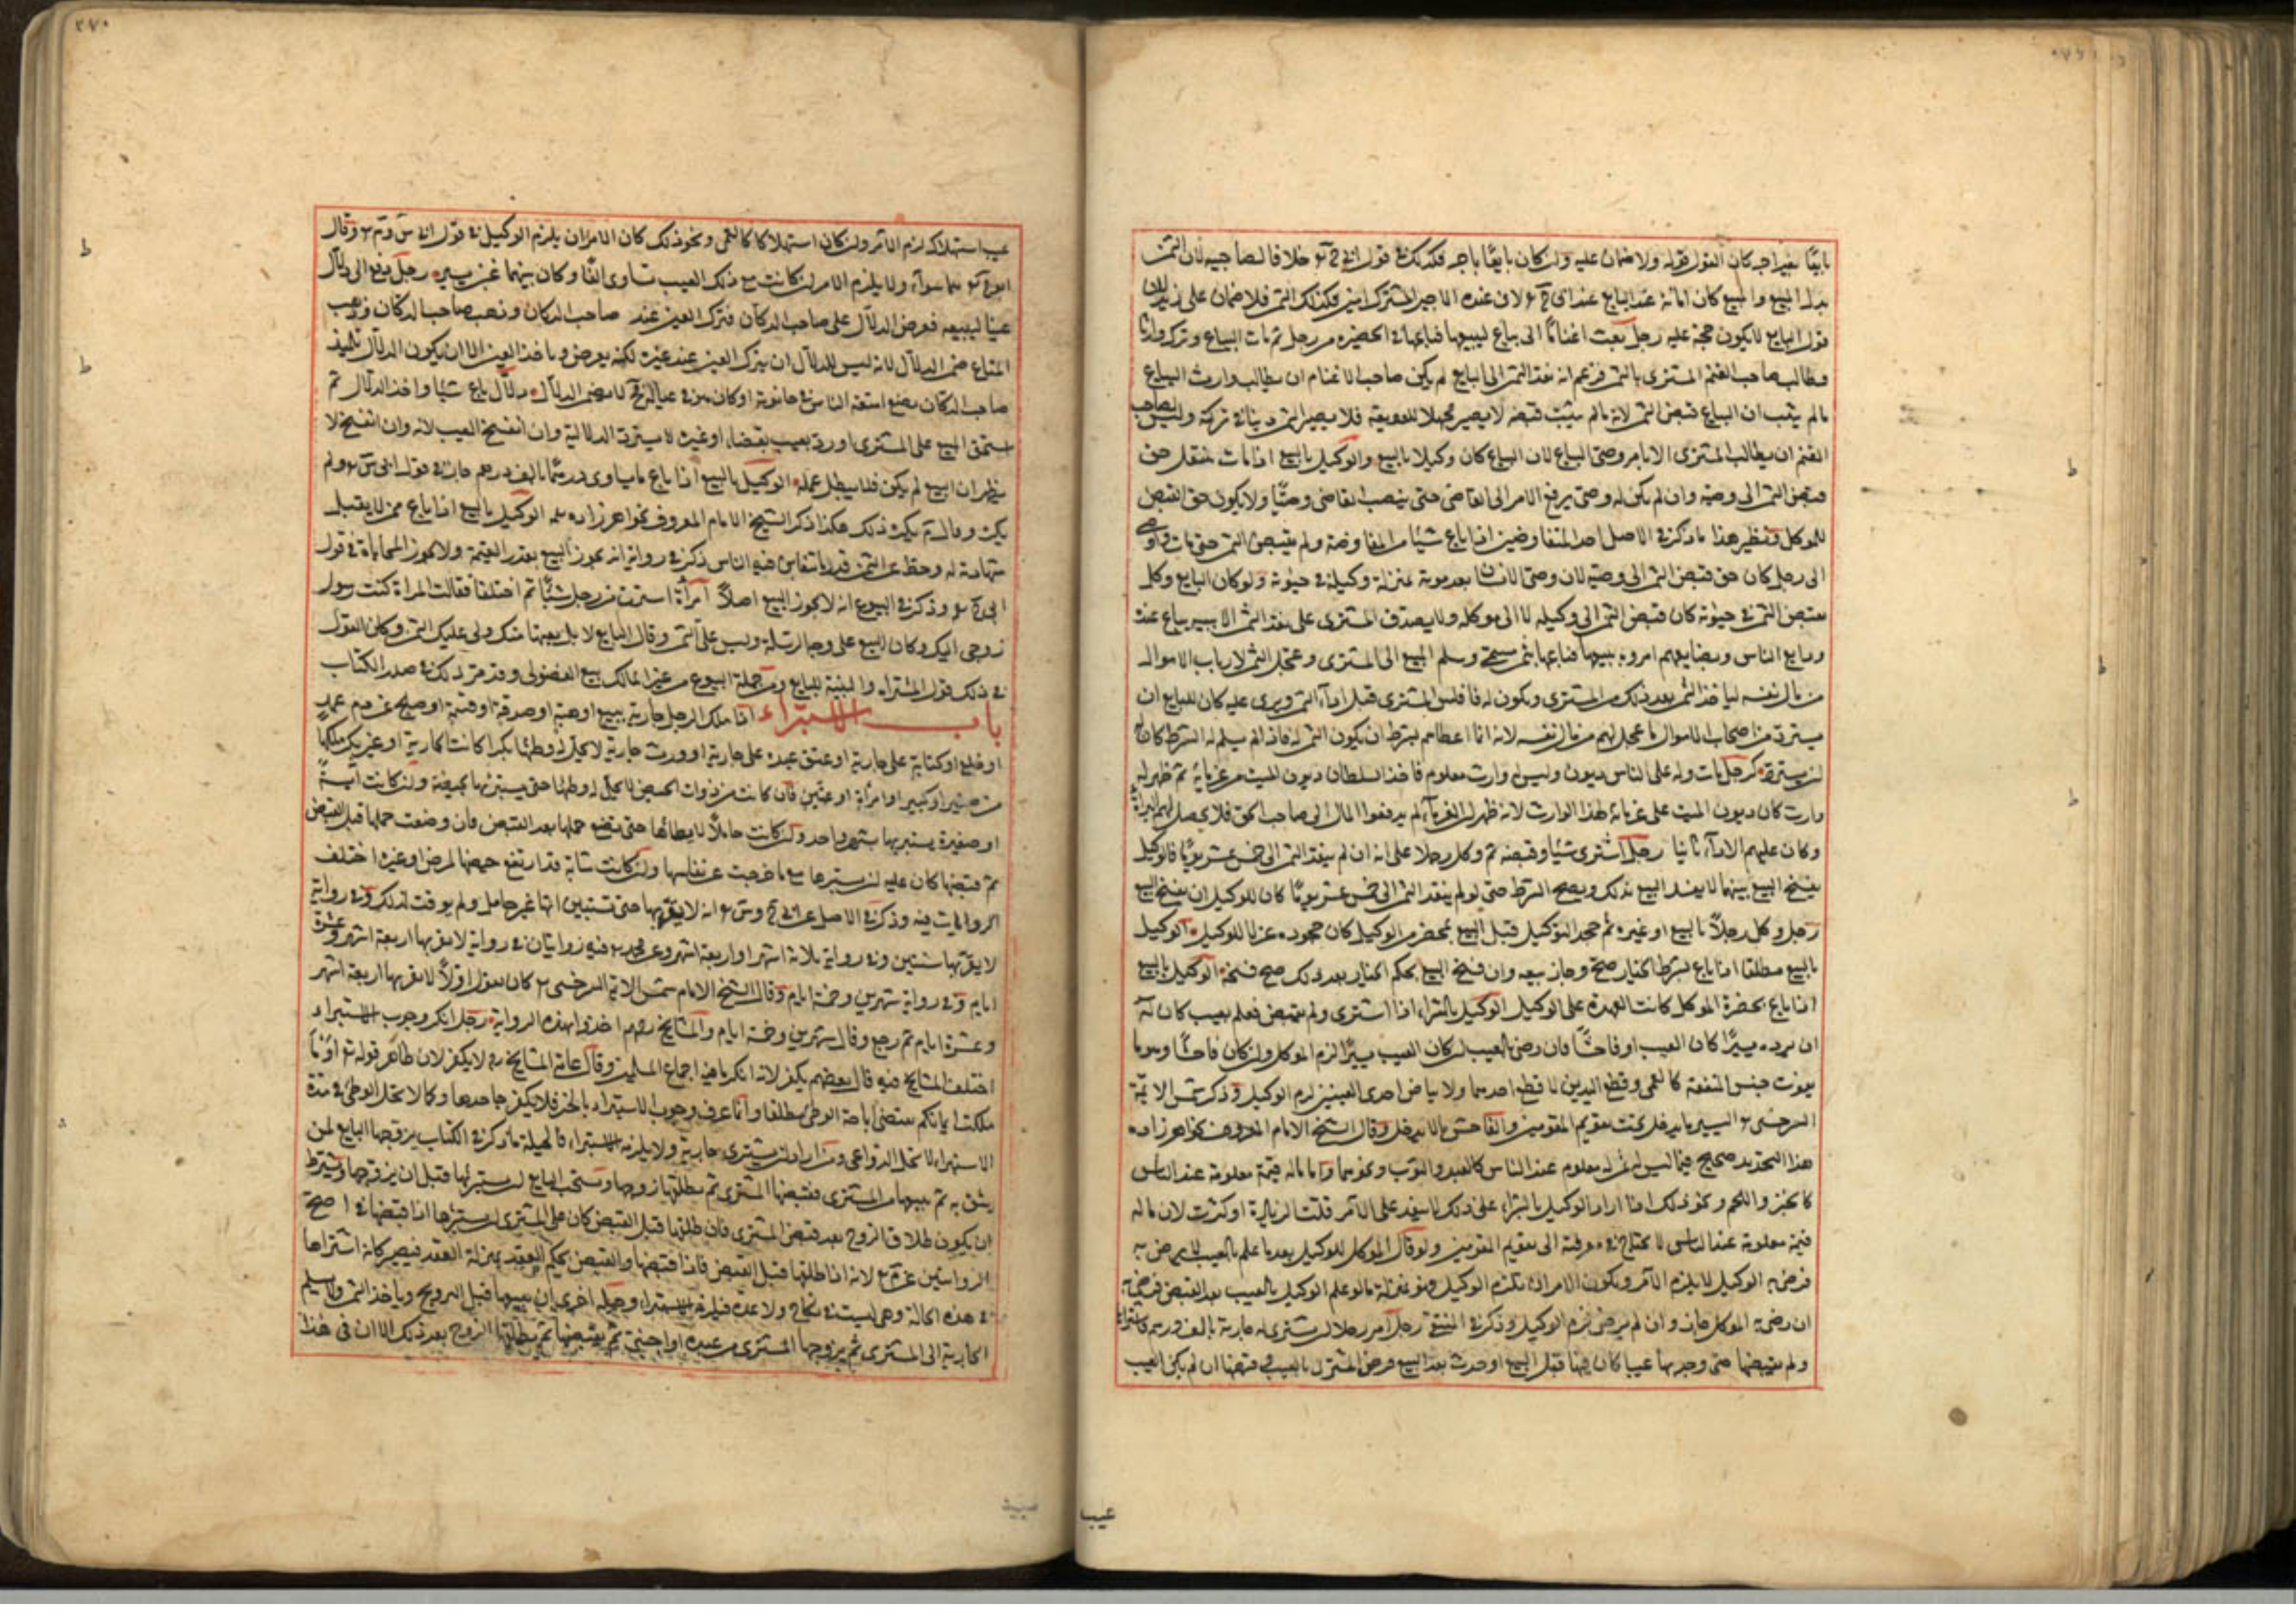 بايعًا بغير اجر كان القول قوله ولا ضمان عليه وان كان بايعًا باجر فكذلك في قول ابي ح خلافا لصاجيه لان الثمن
بدل المبيع والمبيع كان امانة عند البايع عند ابي ح لان عنده الاجير المشترك امين فكذلك الثمن فلا ضمان على
قول البايع لا يكون حجة عليه رجل بعث اغنامًا الى بياع ليبيعها فباعها في الحضيره من رجل ثم مات البياع وترك وارثا
فطالب صاحب الغنم المشترى بالثمن فزعم انه نقد الثمن الى البايع لم يكن صاحب الاغنام ان يطالب وارث البياع
مالم يثبت ان البياع قبض الثمن لانه مالم يثبت قبضه لا يصير مجهلا للوديعة فلا يصير الثمن دينا في تركته وليس لصاحب
الغنم ان يطالب المشترى الا بامر وصى البياع لان البياع كان وكيلا بالبيع والوكيل بالبيع اذا مات ينتقل حق
قبض الثمن الى وصيه وان لم يكن له وصى يرفع الامر الى القاضى حتى ينصب القاضى وصيًا ولا يكون حق القبض
للموكل ونظير هذا ما ذكر في الاصل احد المتفاوضين اذا باع شيئا من المفاوضة ولم يقبض الثمن حتى مات واوصى
الى رجل كان حق قبض الثمن الى وصيه لان وصى الانسان بعد موته بمنزلة وكيله في حيوته ولو كان البايع وكل
بقبض الثمن في حيوته كان قبض الثمن الى وكيله لا الى موكله ولا يصدق المشترى على نقد الثمن الا ببينة بياع عنده
وبايع الناس وبضايعهم امروه ببيعها فباعها بثمن مسمى وسلم المبيع الى المشترى وعجل الثمن لارباب الاموال
من مال نفسه لياخذ الثمن بعد ذلك من المشترى ويكون له فافلس المشترى قبل اداء الثمن كان للبايع ان
يسترد من اصحاب الاموال ما عجل لهم من مال نفسه لانه انما اعطاهم بشرط ان يكون الثمن له فاذا لم يسلم له الشرط كان له
ان يسترد كرجل مات وله على الناس ديون وليس له وارث معلوم فاخذ السلطان ديون الميت من غرمائه ثم ظهر له
وارث كان ديون الميت على غرمائه لهذا الوارث لانه ظهر ان الغرماء لم يدفعوا المال الى صاحب الحق فلا يحصل لهم البراة
وكان عليهم الاداء ثانيا رجل اشترى شيئا وقبضه ثم وكل رجلا على انه ان لم ينقد الثمن الى خمس عشر يومًا فالوكيل
يفسخ البيع بينهما لا يفسد البيع بذلك ويصح الشرط حتى لو لم ينقد الثمن الى خمس عشر يومًا كان للوكيل ان يفسخ البيع
رجل وكل رجلاً بالبيع او غيره ثم جحد التوكيل قبل البيع بمحضر من الوكيل كان جحوده عزلا للوكيل الوكيل
بالبيع مطلقا اذا باع بشرط الخيار صح وجاز بيعه وان فسخ البيع بحكم الخيار بعد ذلك صح فسخه الوكيل بالبيع
اذا باع بحضرة الموكل كانت العهدة على الوكيل الوكيل بالشراء اذا اشترى ولم يقبض فعلم بعيب كان له
ان يرده يسيرًا كان العيب او فاحشًا فان رضى بالعيب ان كان العيب يسيرًا لزم الموكل وان كان فاحشًا وهو ما
يفوت جنس المنفعة كالعمى وقطع اليدين لا قطع احدهما ولا بياض احدى العينين لزم الوكيل وذكر شمس الائمة
السرخسى اليسير ما يدخل تحت تقويم المقومين والفاحش ما لا يدخل وقال الشيخ الامام المعروف بخواهرزاده
هذا التحديد صحيح فيما ليس له ثمن معلوم عند الناس كالعبد والثوب ونحوهما واما ماله قيمة معلومة عند الناس
كالخبز واللحم ونحو ذلك اذا زاد الوكيل بالشراء على ذلك لا ينفد على الآمر قلت الزيادة او كثرت لان ماله
قيمة معلومة عند الناس لا يحتاج في معرفته الى تقويم المقومين ولو قال الموكل للوكيل بعد ما علم بالعيب لا ترض به
فرضى به الوكيل لا يلزم الآمر ويكون الامر ان يلزم الوكيل وهو بمنزلة ما لو علم الوكيل بالعيب بعد القبض فرضى به
ان رضى به الموكل جاز وان لم يرض لزم الوكيل وذكر في المنتقى رجل آمر رجلا ان يشترى له جارية بالف درهم فاشتراها
ولم يقبضها حتى وجد بها عيبا كان فيها قبل البيع او حدث بعد البيع فرضى المشترى بالعيب فقبضها ان لم يكن العيب
عيب
عيب استهلاك لزم الآمر وان كان استهلاكا كالعمى ونحو ذلك كان للامر ان يلزم الوكيل في قول ابي س وم وقال
ابو ح هما سواء ولا يلزم الامر ان كانت مع ذلك العيب تساوى الفًا وكان بينهما غبن يسير رجل دفع الى دلال
عينًا ليبيعه فعرض الدلال على صاحب الدكان فترك العين عند صاحب الدكان وذهب
المتاع ضمن الدلال لانه ليس للدلال ان يترك العين عند غيره لكنه يعرض وياخذ العين الا ان يكون الدلال تلميذ
صاحب الدكان يضع امتعة الناس في حانوته او كان من في عياله لا يضمن الدلال دلال باع شيئا واخذ الدلال ثم
استحق المبيع على المشترى او رد بعيب بقضاء او غيره لا يسترد الدلالية وان انفسخ البيع لانه وان انفسخ لا
يظهر ان البيع لم يكن فلا يبطل عمله الوكيل بالبيع اذا باع ما يساوى درهمًا بالف درهم جاز في قول ابي س ولم
يكره وقال يكره ذلك هكذا ذكر الشيخ الامام المعروف بخواهرزاده الوكيل بالبيع اذا باع ممن لا يقبل
شهادته له وحط عن الثمن قدر ما يتغابن فيه الناس ذكر في رواية انه يجوز البيع بقدر القيمة ولا يجوز المحاباة في قول
ابي ح وذكر في البيوع انه لا يجوز البيع اصلاً امرأة اشترت من رجل شيئًا ثم اختلفا فقالت المراة كنت رسول
زوجى اليك وكان البيع على وجه الرسالة وليس علي الثمن وقال البايع لا بل بعتها منك ولى عليك الثمن وكان القول
في ذلك قول المشتراة والبينة للبايع ومن جملة البيوع من غير المالك بيع الفضولى وقد مر ذلك في صدر الكتاب
باب الاستبراء اذا ملك الرجل جارية ببيع او هبة او صدقة او قسمة او صلح عن دم عمد
او خلع او كتابة على جارية او عتق عبده على جارية او ورث جارية لا يحل له وطئها بكرا كانت الجارية او غير بكر ملكها
من صغير او كبير او امراة او عنين فان كانت من ذوات الحيض لا يحل له وطئها حتى يستبرئها بحيضة وان كانت ايسة
او صغيرة يستبرئها بشهر واحد وان كانت حاملًا لا يطائها حتى تضع حملها بعد القبض فان وضعت حملها قبل القبض
ثم قبضها كان عليه ان يستبرئها بعد ما خرجت عن نفاسها وان كانت شابة قد ارتفع حيضها لمرض او غيره اختلف
الروايات فيه وذكر في الاصل عن ابي ح وس انه لا يقربها حتى تستبين انها غير حامل ولم يوقت لذلك وفي رواية
لا يقربها سنتين وفي رواية ثلاثة اشهر او اربعة اشهر وعن محمد فيه روايتان في رواية لا يقربها اربعة اشهر وعشرة
ايام وفي رواية شهرين وخمسة ايام وقال الشيخ الامام شمس الائمة السرخسى كان يقول اولاً لا يقربها اربعة اشهر
وعشرة ايام ثم رجع وقال شهرين وخمسة ايام والمشايخ اخذوا بهذه الرواية رجل انكر وجوب الاستبراء
اختلف المشايخ فيه قال بعضهم يكفر لانه انكر ما فيه اجماع المسلمين وقال عامة المشايخ لا يكفر لان ظاهر قوله تع او ما
ملكت ايمانكم يقتضى اباحة الوطئ مطلقا وانما عرف وجوب الاستبراء بالخبر فلا يكفر جاحدها وكما لا يحل الوطئ في مدة
الاستبراء لا تحل الدواعى ومن اراد ان يشترى جارية ولا يلزمه الاستبراء فالحيلة ما ذكر في الكتاب يزوجها البايع لمن
يثق به ثم يبيعها من المشترى فيقبضها المشترى ثم يطلقها زوجها ويستحب للبايع ان يستبرئها قبل ان يزوجها ويشترط
ان يكون طلاق الزوج بعد قبض المشترى فان طلقها قبل القبض كان على المشترى ان يستبرئها اذا قبضها في اصح
الروايتين عن م لانه اذا طلقها قبل القبض فاذا قبضها والقبض بحكم العقد بمنزلة العقد فيصير كانه اشتراها
في هذه الحالة وهى ليست في نكاح ولا عدة فيلزمه الاستبراء وحيلة اخرى ان يبيعها قبل التزويج وياخذ الثمن ولا يسلم
الجارية الى المشترى ثم يزوجها المشترى من عبده او اجنبى ثم يقبضها ثم يطلقها الزوج بعد ذلك الا ان في هذا